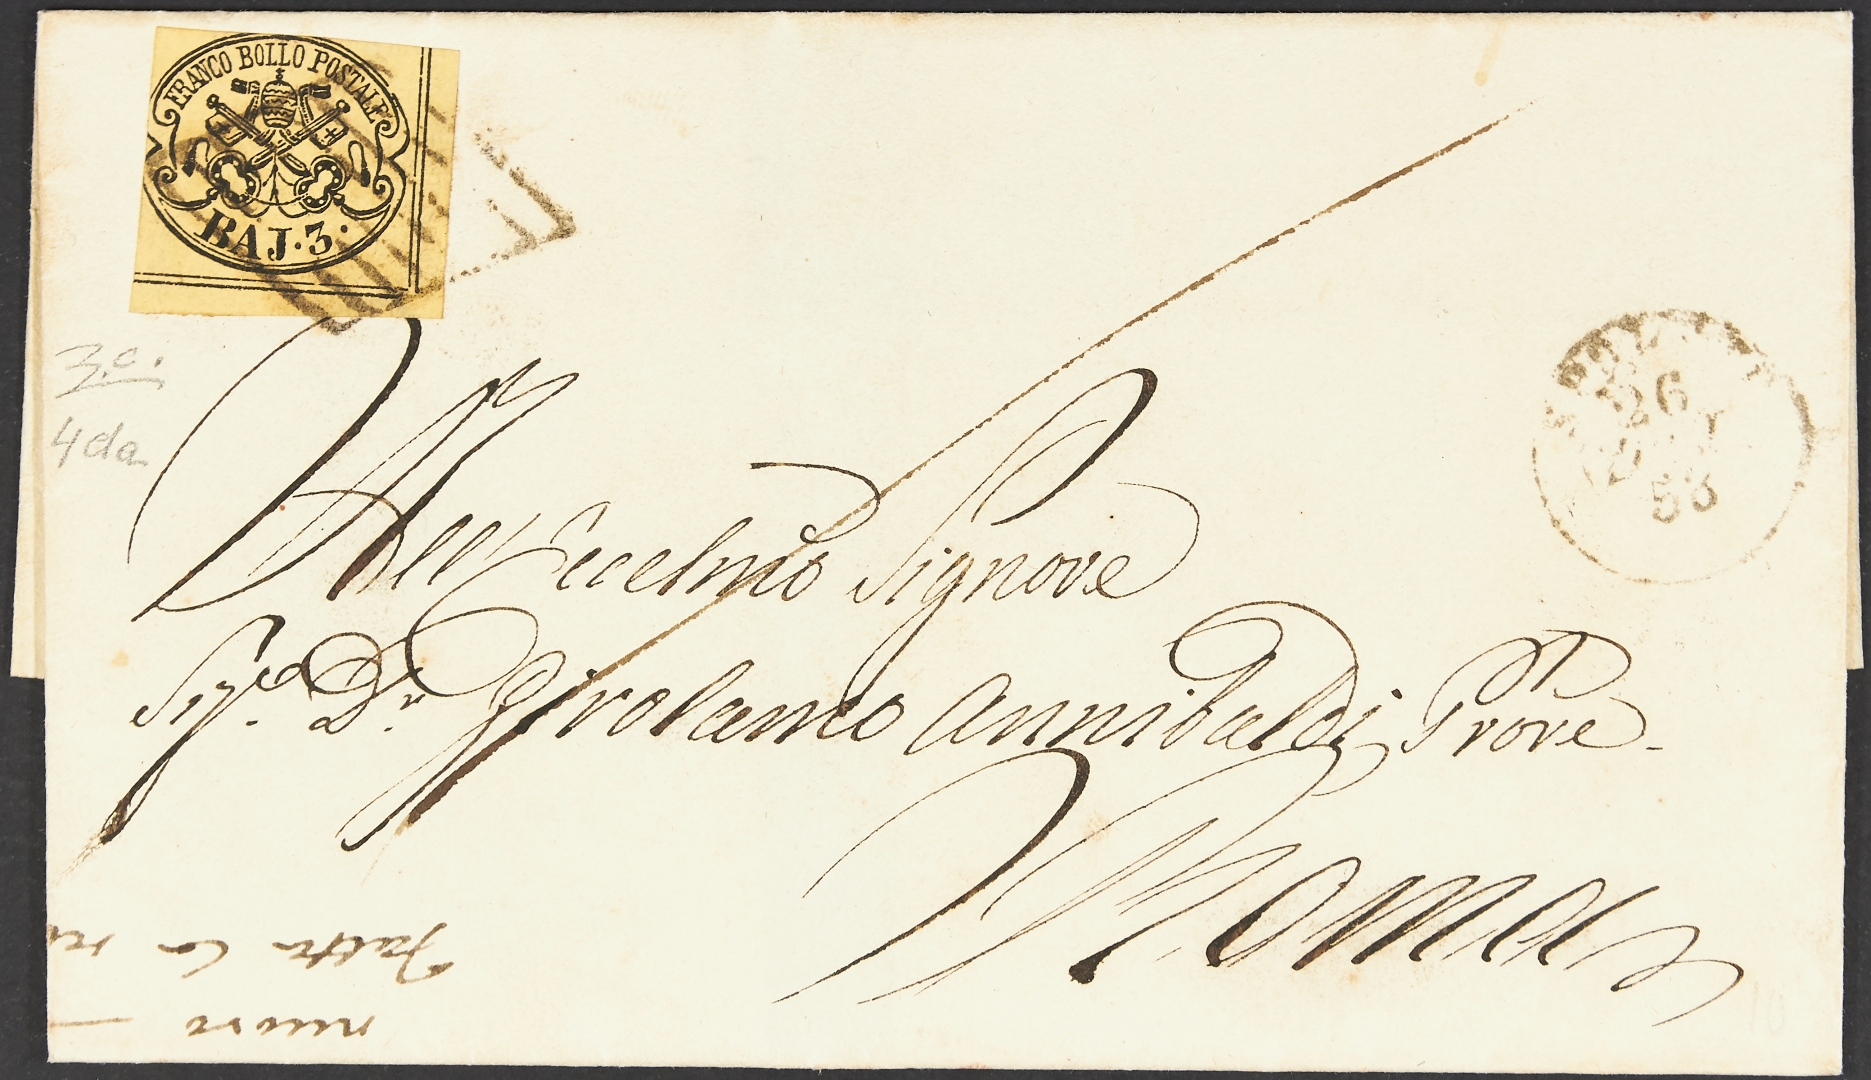 FRANCO BOLLO POSTALE
BAJ. 3.
3.c.
4 da
26
53
All Eccelmo Signore
Sigre Dr. Girolamo Annibaldi Prore.
Roma
Fatta la
nuove